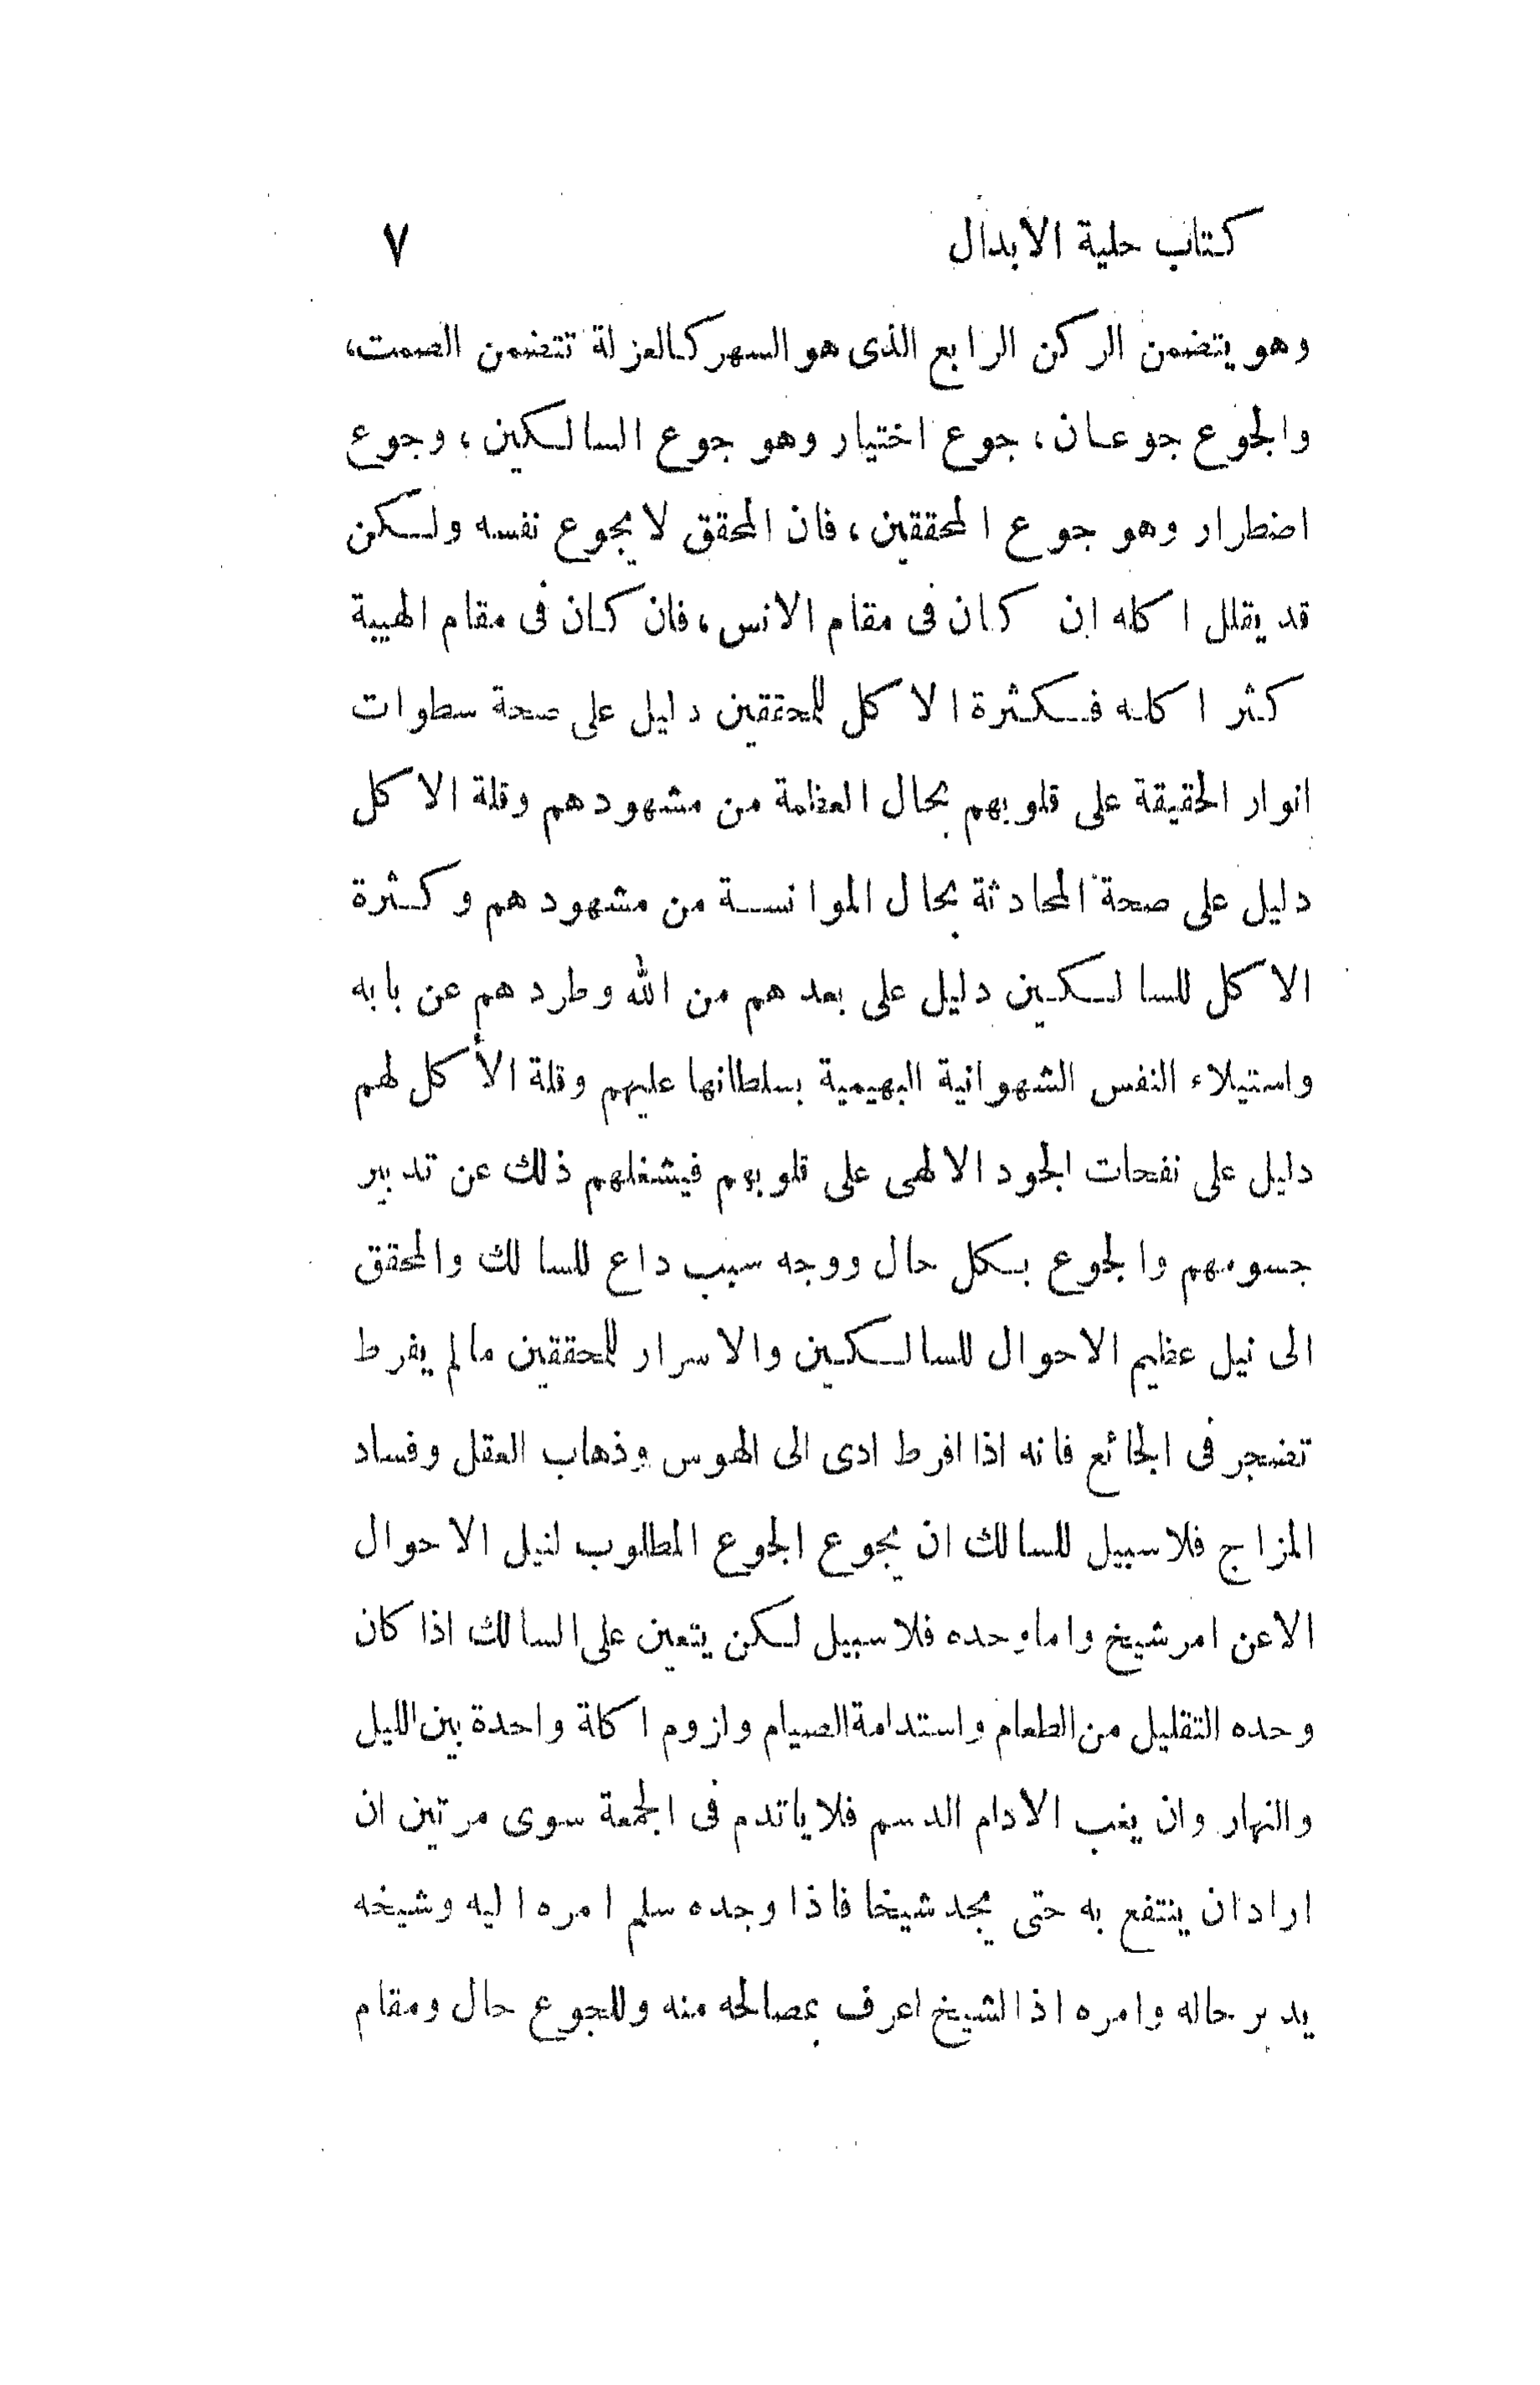 كتاب حلية الابدال ٧
وهو يتضمن الركن الرابع الذى هو السهر كالعزلة تتضمن الصمت،
والجوع جوعان، جوع اختيار وهو جوع السالكين، وجوع
اضطرار وهو جوع المحققين، فان المحقق لا يجوع نفسه ولكن
قد يقلل اكله ان كان فى مقام الانس، فان كان فى مقام الهيبة
كثر اكله فكثرة الاكل للمحققين دليل على صحة سطوات
انوار الحقيقة على قلوبهم بحال العظمة من مشهودهم وقلة الاكل
دليل على صحة المحادثة بحال الموانسة من مشهودهم وكثرة
الاكل للسالكين دليل على بعدهم من الله وطردهم عن بابه
واستيلاء النفس الشهوانية البهيمية بسلطانها عليهم وقلة الأكل لهم
دليل على نفحات الجود الالهى على قلوبهم فيشغلهم ذلك عن تدبير
جسومهم والجوع بكل حال ووجه سبب داع للسالك والمحقق
الى نيل عظيم الاحوال للسالكين والاسرار للمحققين مالم يفرط
تضجر فى الجائع فانه اذا افرط ادى الى الهوس وذهاب العقل وفساد
المزاج فلا سبيل للسالك ان يجوع الجوع المطلوب لنيل الاحوال
الاعن امر شيخ واما وحده فلا سبيل لكن يتعين على السالك اذا كان
وحده التقليل من الطعام واستدامة الصيام ولزوم اكلة واحدة بين الليل
والنهار وان يغب الادام الدسم فلا ياتدم فى الجمعة سوى مرتين ان
اراد ان ينتفع به حتى يجد شيخا فاذا وجده سلم امره اليه وشيخه
يدبر حاله وامره اذ الشيخ اعرف بمصالحه منه وللجوع حال ومقام